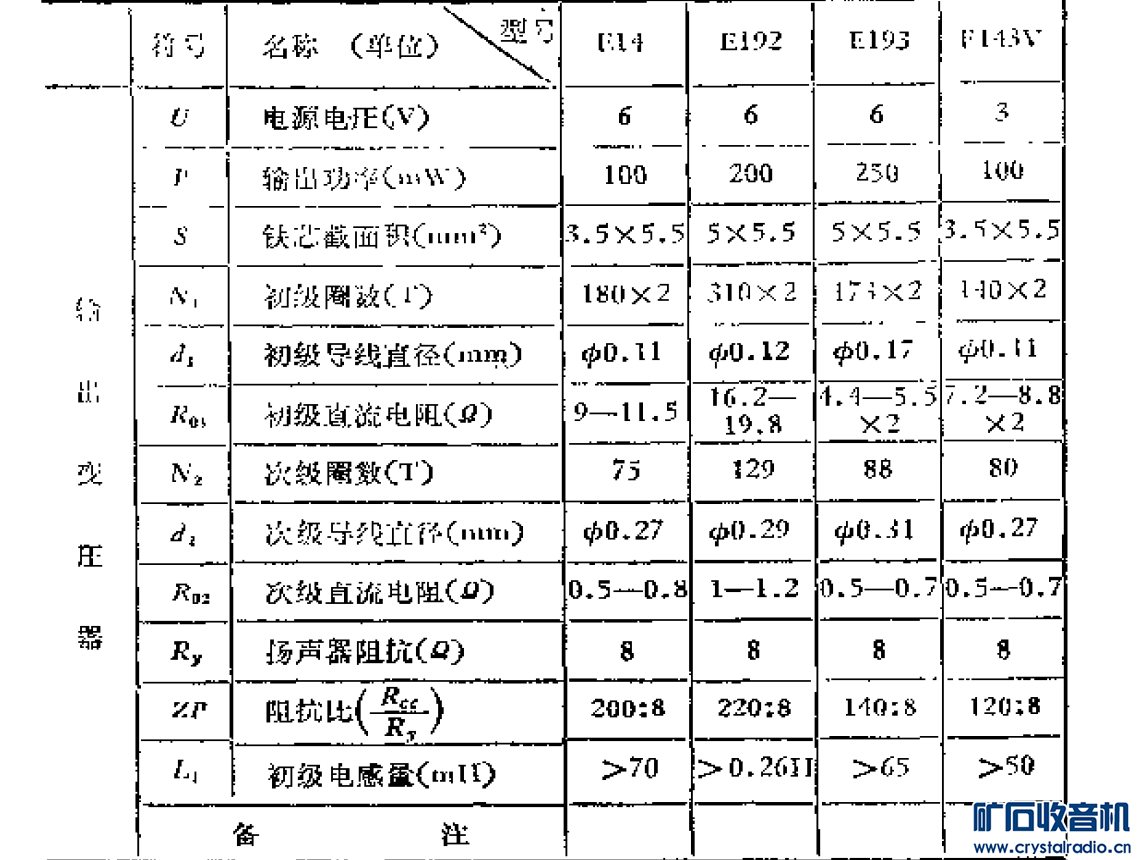 符号 名称 (单位) 型号 E14 E192 E193 E143V
输出变压器
U 电源电压(V) 6 6 6 3
P 输出功率(mW) 100 200 250 100
S 铁芯截面积(mm²) 3.5×5.5 5×5.5 5×5.5 3.5×5.5
N₁ 初级圈数(T) 180×2 310×2 ×2 140×2
d₁ 初级导线直径(mm) φ0.11 φ0.12 φ0.17 φ0.11
R₀₁ 初级直流电阻(Ω) 9—11.5 16.2—19.8 4.4—5.5×2 7.2—8.8×2
N₂ 次级圈数(T) 75 129 88 80
d₂ 次级导线直径(mm) φ0.27 φ0.29 φ0.31 φ0.27
R₀₂ 次级直流电阻(Ω) 0.5—0.8 1—1.2 0.5—0.7 0.5—0.7
Ry 扬声器阻抗(Ω) 8 8 8 8
ZP 阻抗比(Rcc/Ry) 200:8 220:8 140:8 120:8
L₁ 初级电感量(mH) >70 >0.26H >65 >50
备 注
矿石收音机
www.crystalradio.cn